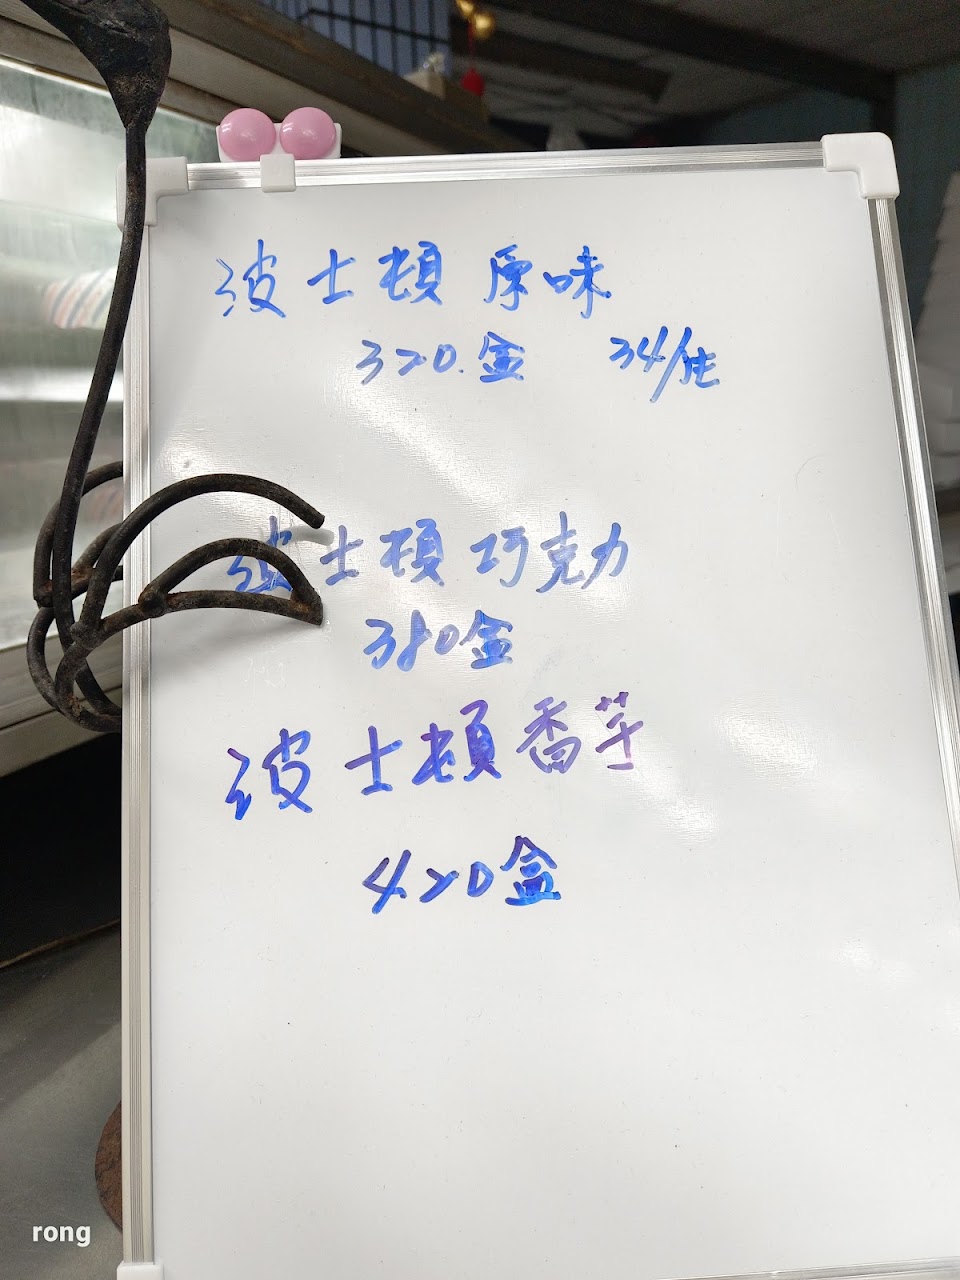 波士頓 原味
320.盒 34/佐
波士頓 巧克力
380盒
波士頓香芋
420盒
rong